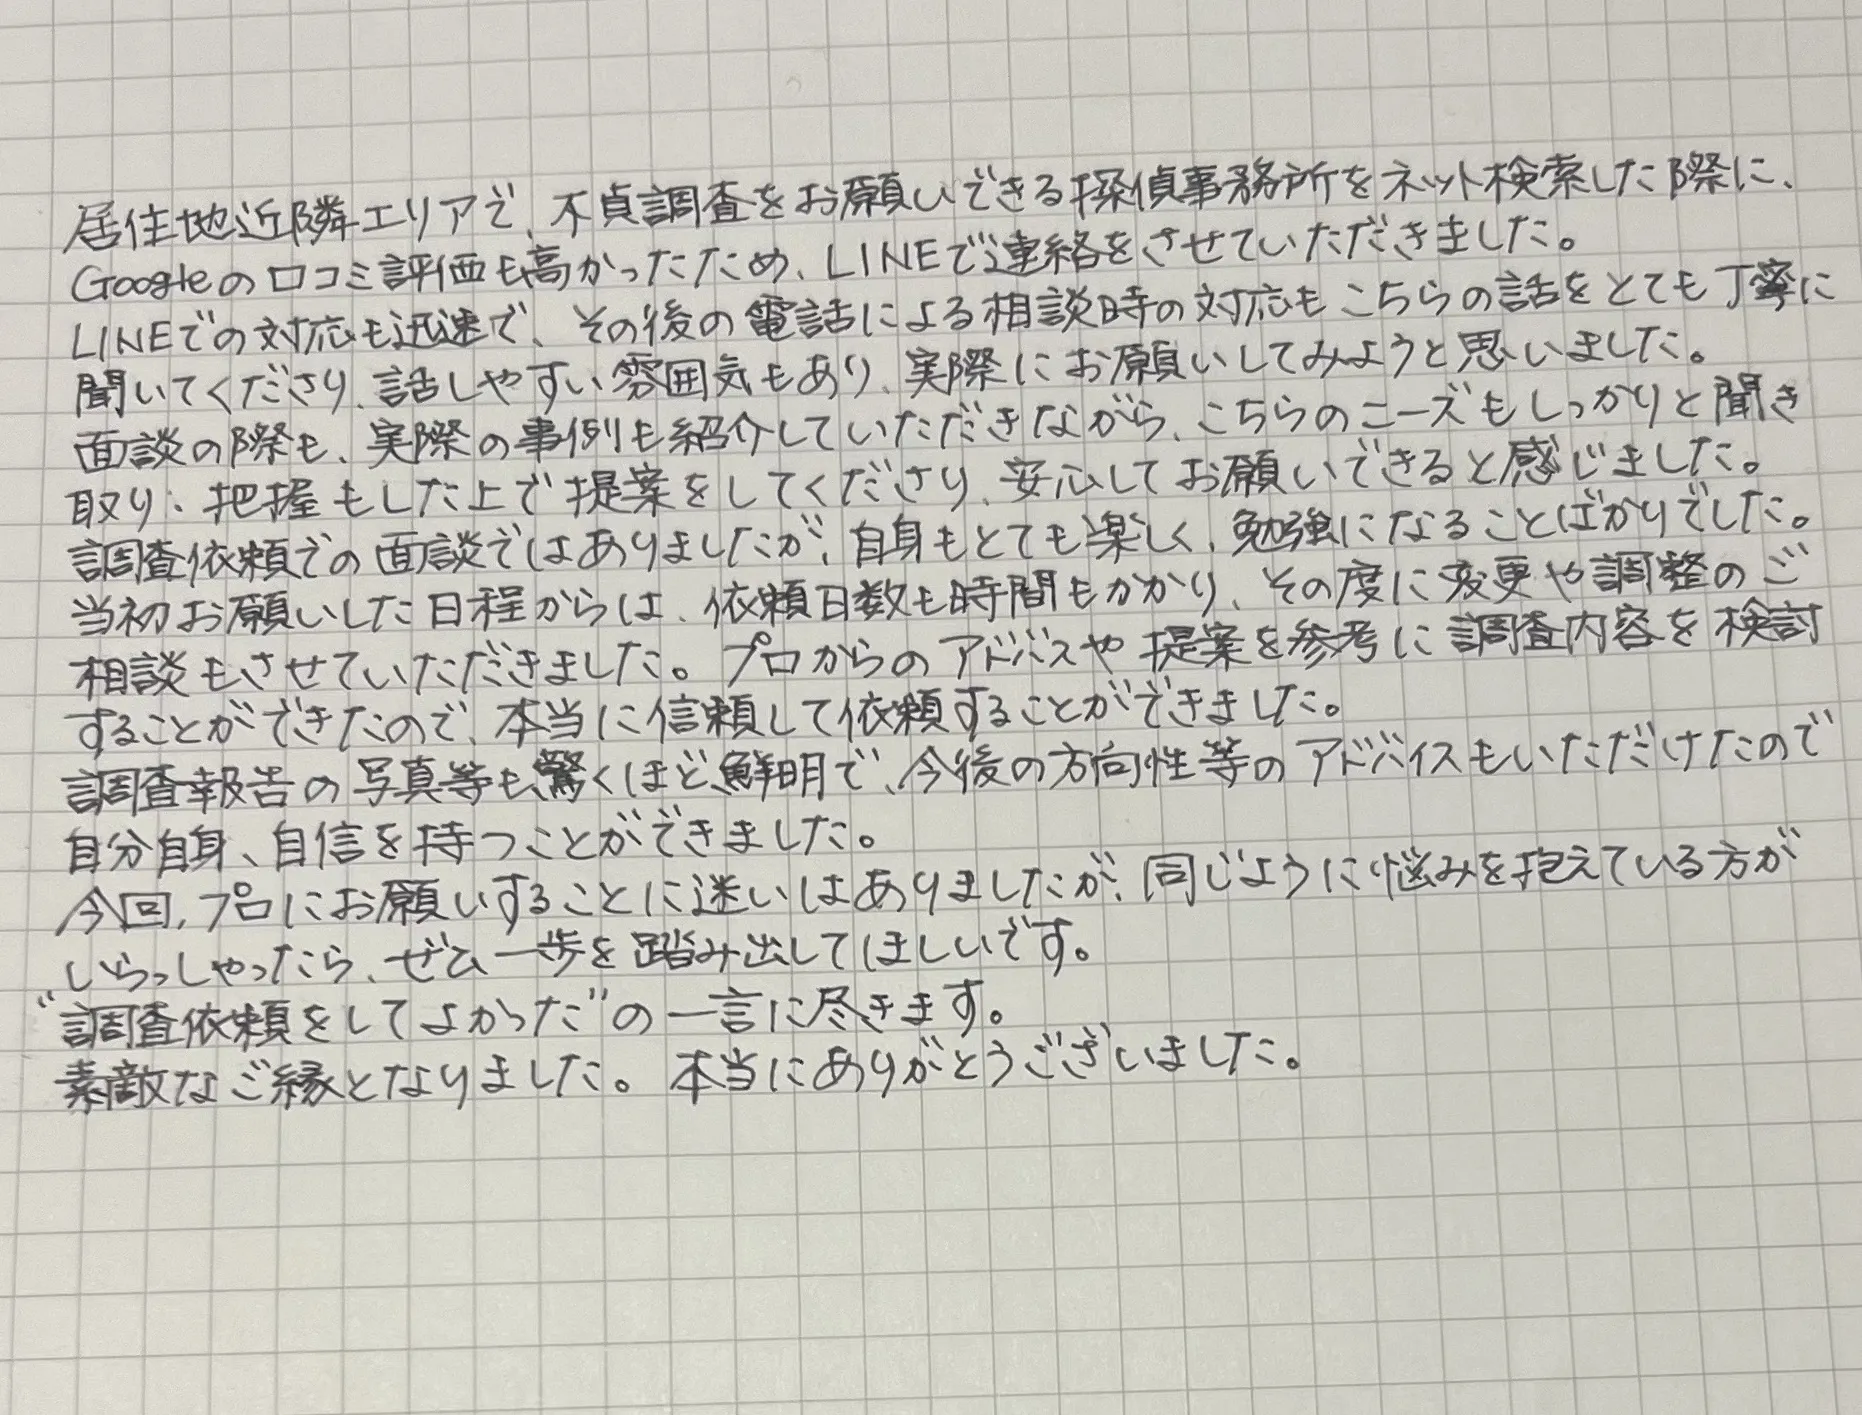 居住地近隣エリアで、不貞調査をお願いできる探偵事務所をネット検索した際に、
Googleの口コミ評価も高かったため、LINEで連絡をさせていただきました。
LINEでの対応も迅速で、その後の電話による相談時の対応もこちらの話をとても丁寧に
聞いてくださり、話しやすい雰囲気もあり、実際にお願いしてみようと思いました。
面談の際も、実際の事例も紹介していただきながら、こちらのニーズもしっかりと聞き
取り、把握もした上で提案をしてくださり、安心してお願いできると感じました。
調査依頼での面談ではありましたが、自身もとても楽しく、勉強になることばかりでした。
当初お願いした日程からは、依頼日数も時間もかかり、その度に変更や調整のご
相談もさせていただきました。プロからのアドバスや提案を参考に調査内容を検討
することができたので、本当に信頼して依頼することができました。
調査報告の写真等も、驚くほど、鮮明で、今後の方向性等のアドバイスもいただけたので
自分自身、自信を持つことができました。
今回、プロにお願いすることに迷いはありましたが、同じように悩みを抱えている方が
いらっしゃったら、ぜひ一歩を踏み出してほしいです。
"調査依頼をしてよかった"の一言に尽きます。
素敵なご縁となりました。本当にありがとうございました。